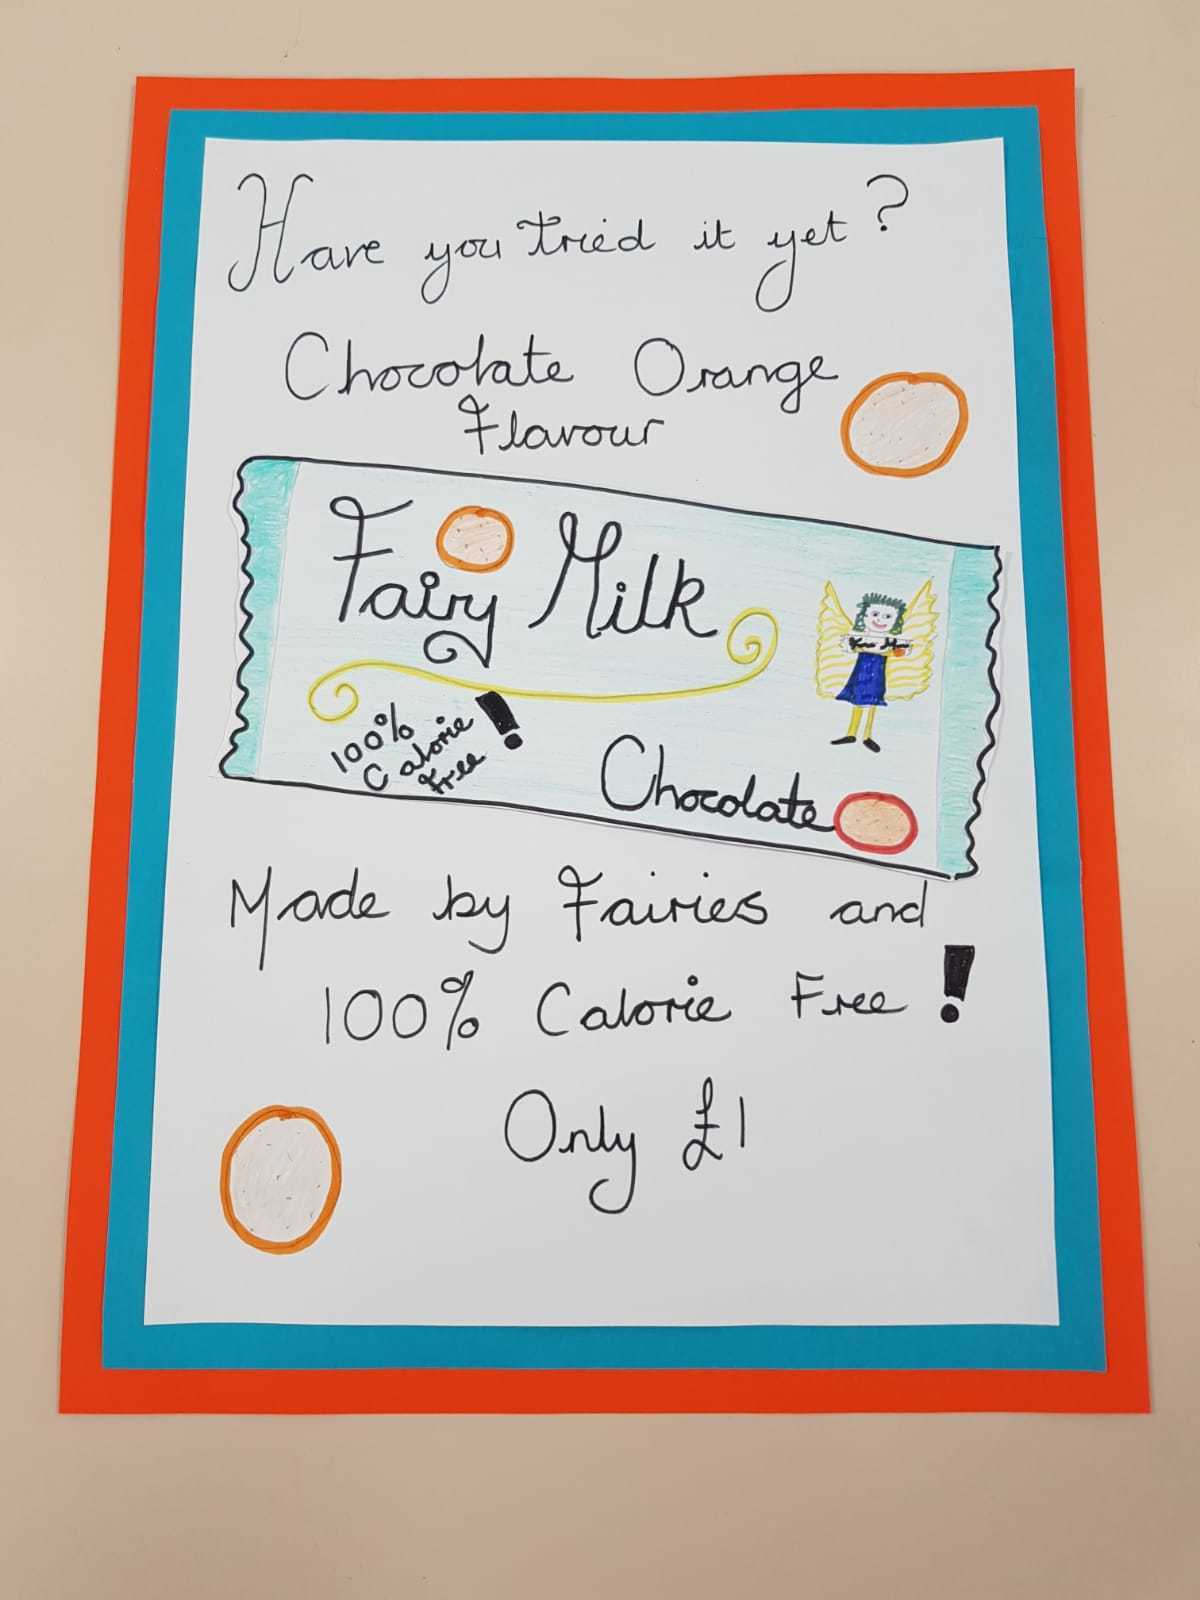 Have you tried it yet?
Chocolate Orange
Flavour
Fairy Milk
100%
Calorie
Free!
Chocolate
Made by Fairies and
100% Calorie Free!
Only £1